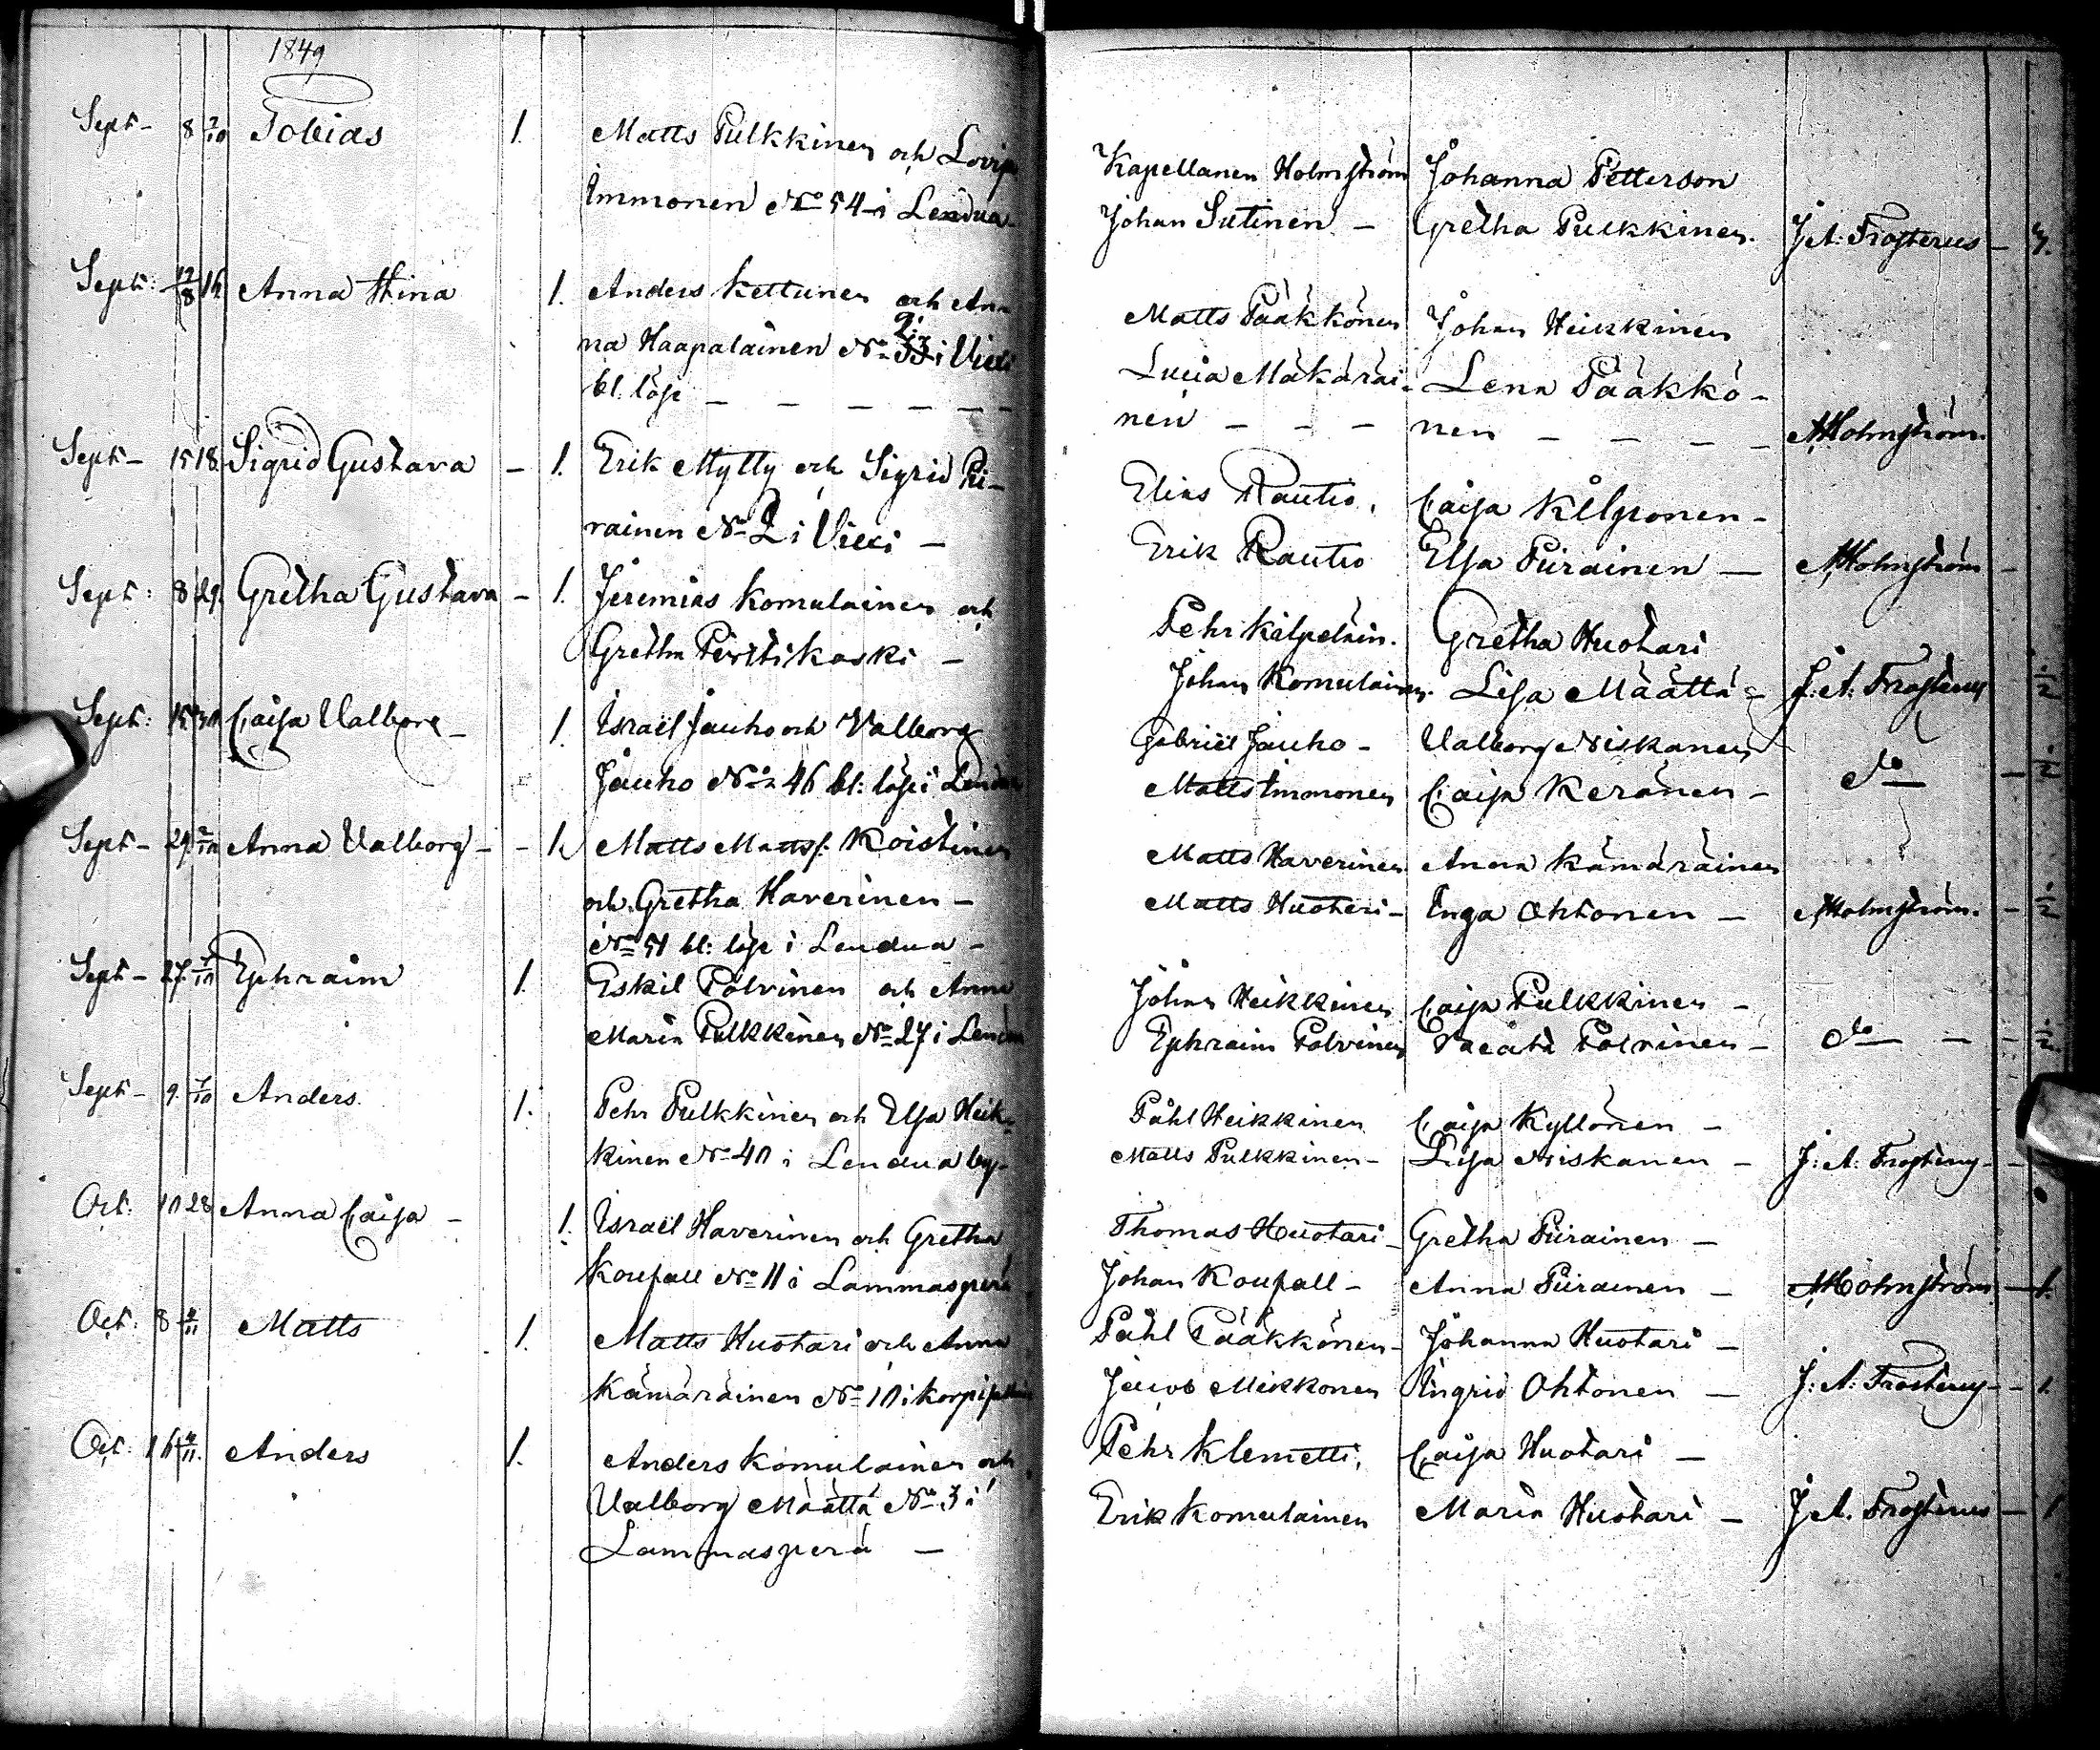 1849
Sept- 8 7/10 Tobias 1. Matts Pulkkinen och Lovisa
Immonen No 54 i Lendua
Sept: 12/8 16 Anna Stina 1. Anders Kettunen och An
2:
na Haapalainen No 33 i Viexi
bl: löse - - - - - -
Sept- 15 18 Sigrid Gustava - 1. Erik Mylly och Sigrid Pi-
rainen No 2 i Viexi -
Sept: 8 29. Gretha Gustava - 1. Jeremias Komulainen och
Gretha Pirttikoski -
Sept: 15 30 Caisa Valborg - 1. Israël Jauho och Valborg
Jauho No 46 bl: löse i Lendua
Sept- 29 2/10 Anna Valborg - - 1. Matts Mattss: Koistinen
och Gretha Haverinen -
No 51 bl: löse i Lendua -
Sept- 27 7/10 Ephraim 1. Eskil Polvinen och Anna
Maria Pulkkinen No 27 i Lendua
Sept- 9. 7/10 Anders. 1. Pehr Pulkkinen och Elsa Heik-
kinen No 40 i Lendua by-
Oct. 10 28 Anna Caisa - 1. Israël Haverinen och Gretha
Koufall No 11 i Lammasperä
Oct. 8 4/11 Matts 1. Matts Huotari och Anna
Kämäräinen No 10 i
Oct: 16 4/11. Anders 1. Anders Komulainen och
Valborg Määttä No 3 i
Lammasperä -
Kapellanen Holmström Johanna Petterson
Johan Sutinen - Gretha Pulkkinen. J.A. Frosterus -
Matts Pääkkönen Johan Heikkinen
Lucia Mäkäräi- Lena Pääkkö-
nen - - - nen - - - - Holmström.
Elias Rautio, Caisa Kilponen -
Erik Rautio Elsa Piirainen - Holmström -
Pehr Kilpeläin. Gretha Huotari
Johan Komulainen. Lisa Määttä - J: A: Frosterus ½
Gabriel Jauho - Valborg Niskanen
Matts Immonen Caisa Keränen - do - ½
Matts Haverinen Anna Kämäräinen
Matts Huotari - Inga Ohtonen - Holmström. - ½
Johan Heikkinen Caisa Pulkkinen -
Ephraim Polvinen Polvinen - do - - ½
Påhl Heikkinen Caisa Kyllönen -
Matts Pulkkinen - Lisa Niskanen - J: A: Frosterus -
Thomas Huotari - Gretha Piirainen -
Johan Koufall - Anna Piirainen - Holmström - 1.
Påhl Pääkkönen - Johanna Huotari -
Jacob Mikkonen Ingrid Ohtonen - J: A: Frosterus - - 1.
Pehr Klemetti, Caisa Huotari -
Erik Komulainen Maria Huotari - J.A. Frosterus - 1